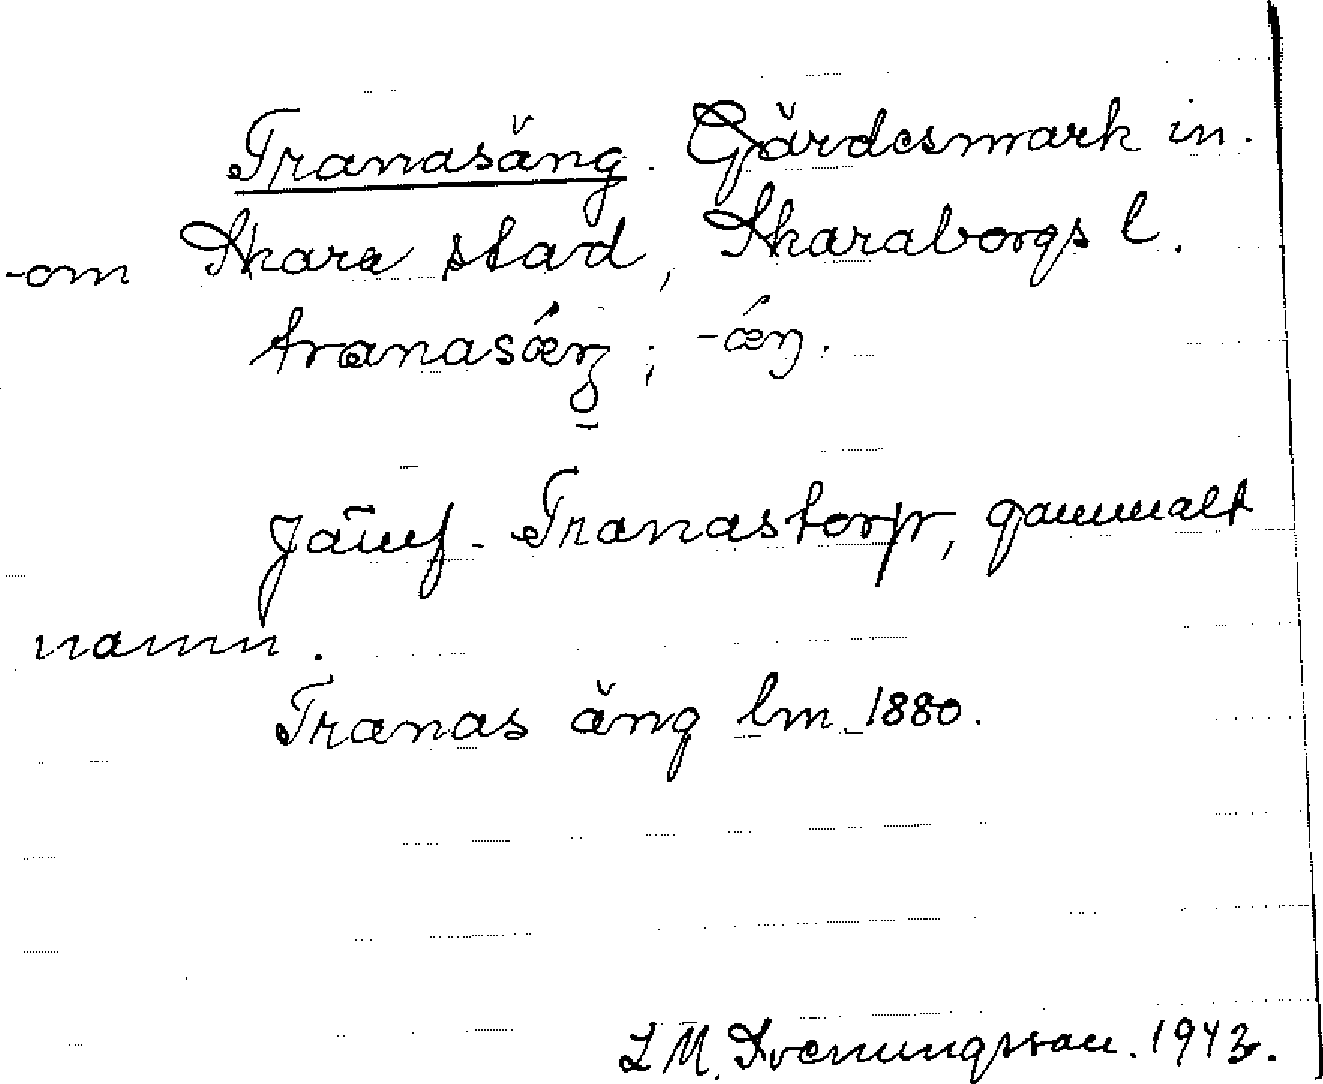 Tranasäng. Gärdesmark in-
om Skara stad, Skaraborgs l.
tranasǽŋ; -ǽŋ.
Jämf. Tranastorp, gammalt
namn.
Tranas äng lm 1880.
L M. Svenungsson. 1943.